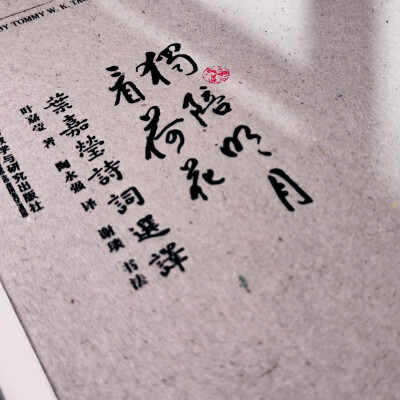 BY TOMMY W. K.
獨陪明月
看荷花
葉嘉瑩詩詞選譯
叶嘉莹 著 陶永强 译 谢琰 书法
学与研究出版社